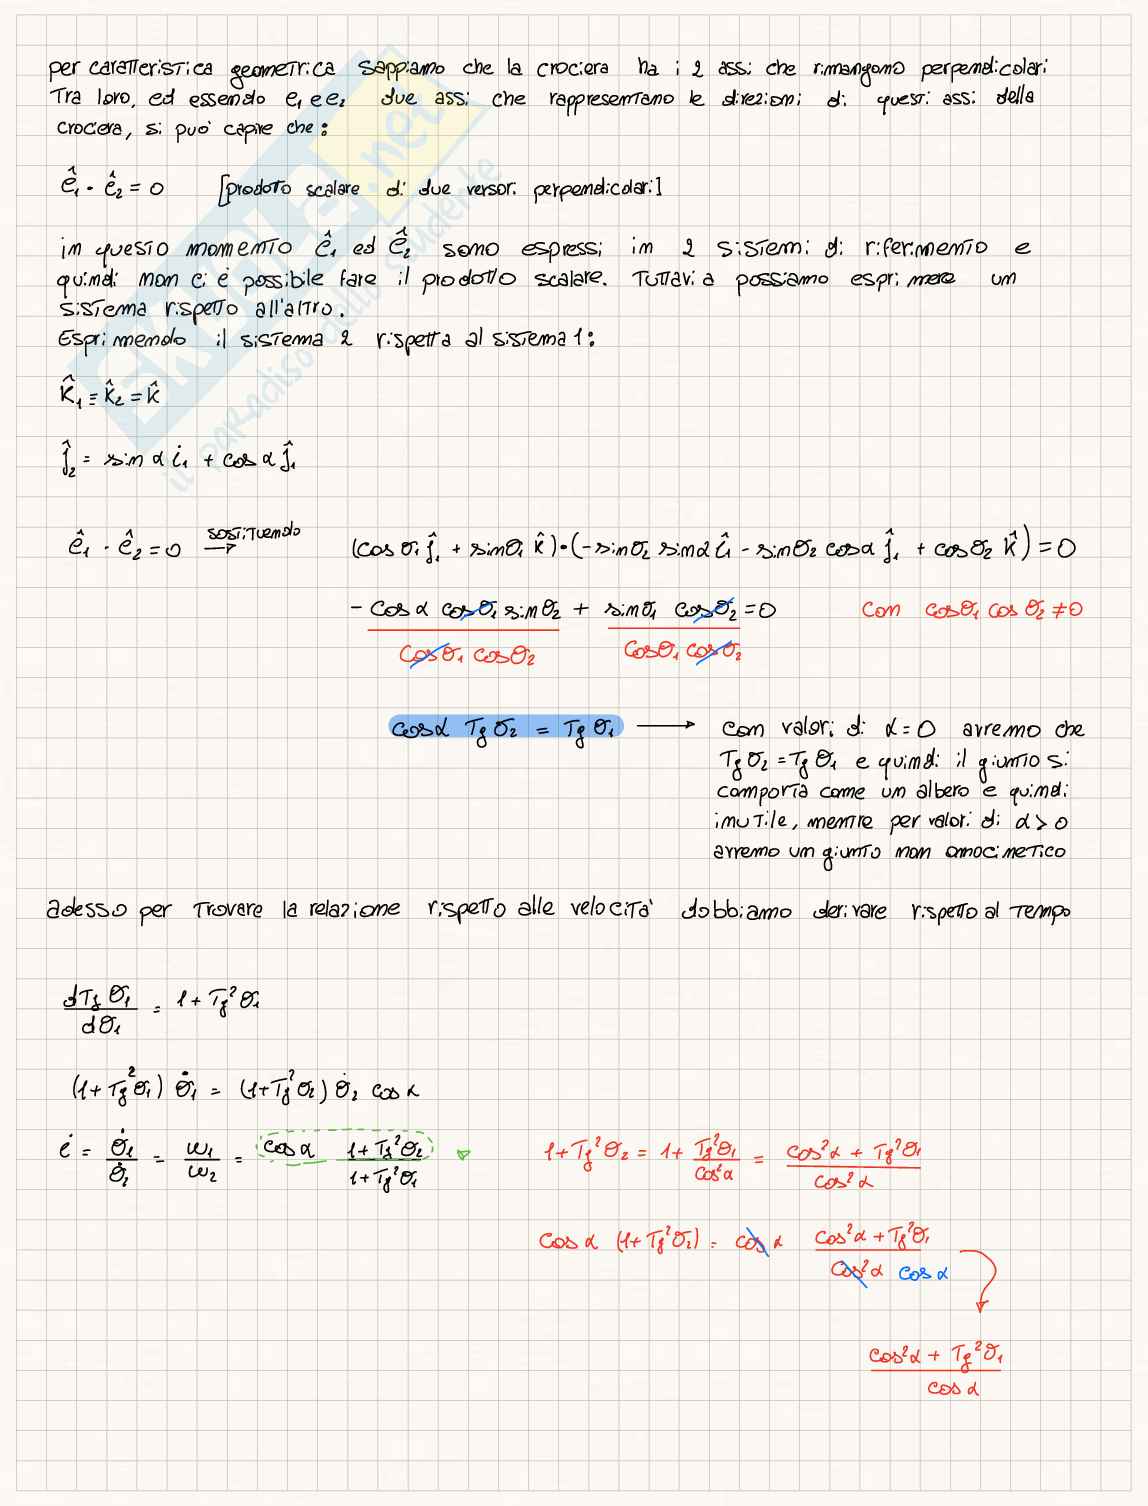 per caratteristica geometrica sappiamo che la crociera ha i 2 assi che rimangono perpendicolari
tra loro, ed essendo e₁ e e₂ due assi che rappresentano le direzioni di questi assi della
crociera, si può capire che:
ê₁ · ê₂ = 0 [prodotto scalare di due versori perpendicolari]
in questo momento ê₁ ed ê₂ sono espressi in 2 sistemi di riferimento e
quindi non ci è possibile fare il prodotto scalare. Tuttavia possiamo esprimere un
sistema rispetto all'altro.
Esprimendo il sistema 2 rispetta al sistema 1:
k̂₁ = k̂₂ = k̂
ĵ₂ = sin α i₁ + cos α ĵ₁
ê₁ · ê₂ = 0 sostituendo → (cos θ₁ ĵ₁ + sin θ₁ k̂) · (- sin θ₂ sin α î₁ - sin θ₂ cos α ĵ₁ + cos θ₂ k̂) = 0
- cos α cos θ₁ sin θ₂ / cos θ₁ cos θ₂ + sin θ₁ cos θ₂ / cos θ₁ cos θ₂ = 0 con cos θ₁ cos θ₂ ≠ 0
cos α Tg θ₂ = Tg θ₁ → con valori di α = 0 avremo che
Tg θ₂ = Tg θ₁ e quindi il giunto si
comporta come un albero e quindi
inutile, mentre per valori di α > 0
avremo un giunto non omocinetico
adesso per trovare la relazione rispetto alle velocità dobbiamo derivare rispetto al tempo
dTg θ₁ / dθ₁ = 1 + Tg² θ₁
(1 + Tg² θ₁) θ̇₁ = (1 + Tg² θ₂) θ̇₂ cos α
i = θ̇₁ / θ̇₂ = ω₁ / ω₂ = cos α (1 + Tg² θ₂) / (1 + Tg² θ₁) 1 + Tg² θ₂ = 1 + Tg² θ₁ / cos² α = (cos² α + Tg² θ₁) / cos² α
cos α (1 + Tg² θ₂) = cos α (cos² α + Tg² θ₁) / cos² α cos α
(cos² α + Tg² θ₁) / cos α
SKUOLA.net
il paradiso dello studente